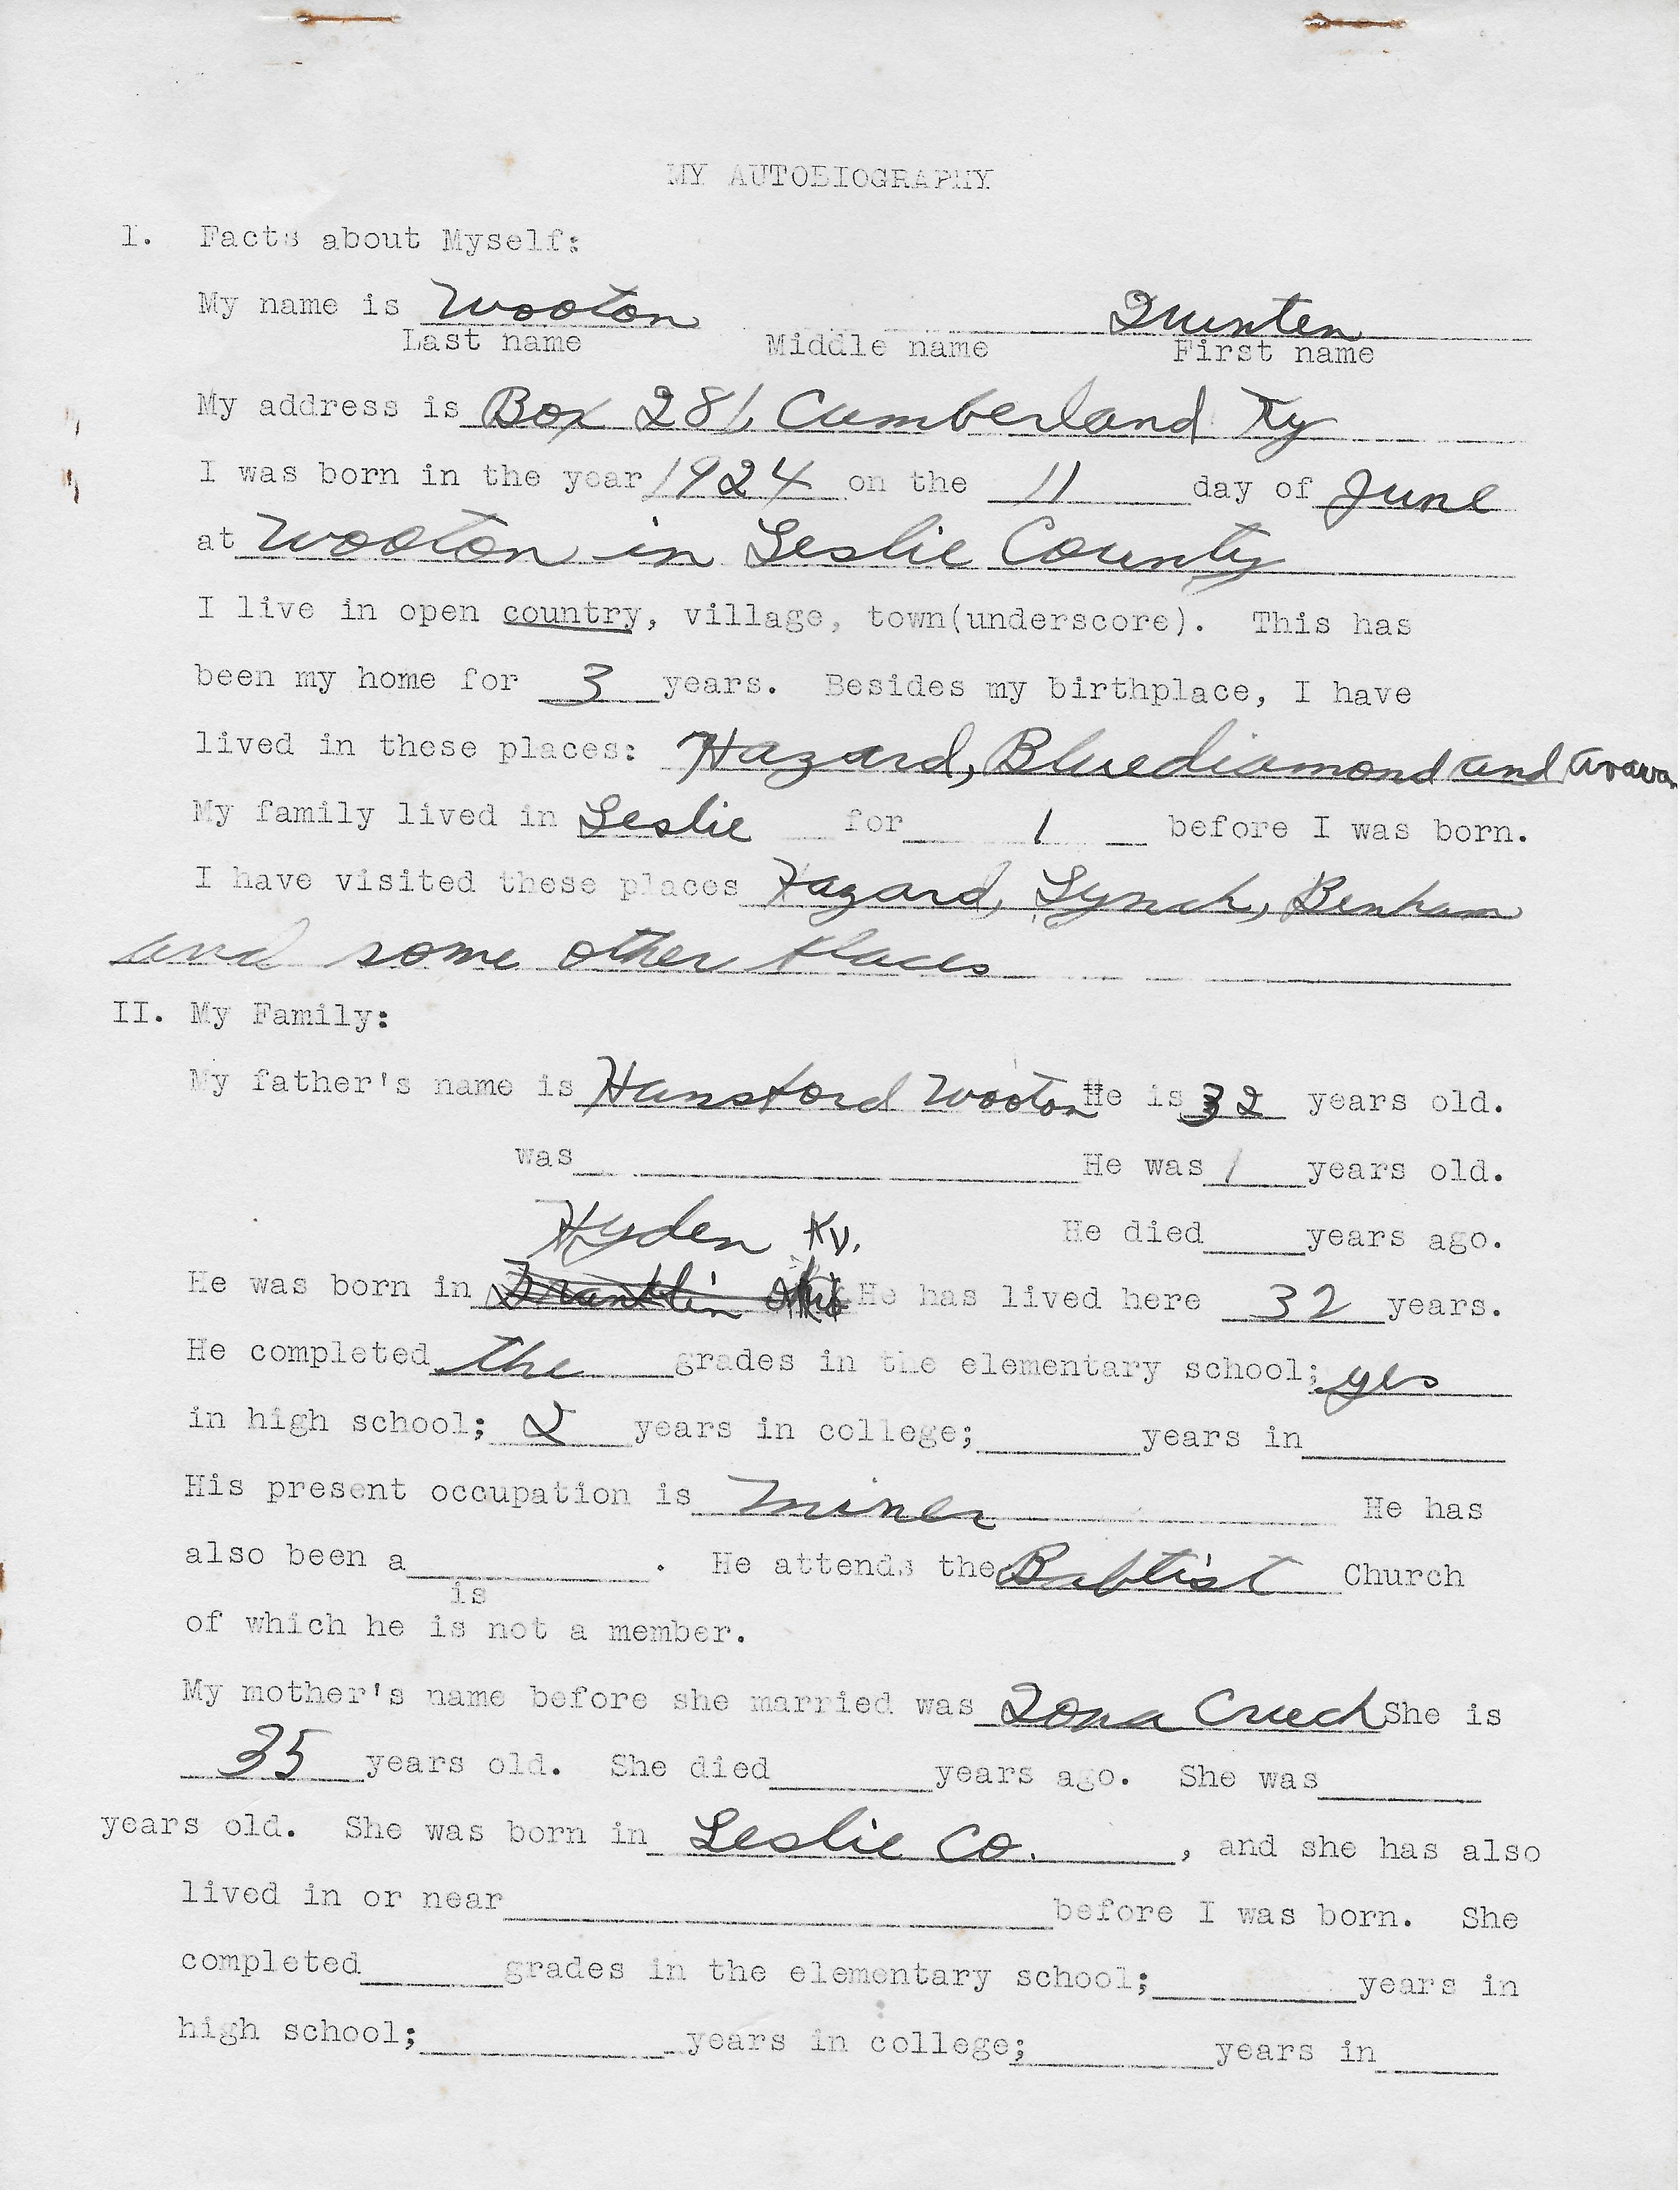 MY AUTOBIOGRAPHY
I. Facts about Myself:
My name is Wooton Quinten
Last name Middle name First name
My address is Box 281, Cumberland Ky
I was born in the year 1924 on the 11 day of June
at Wooton in Leslie County
I live in open country, village, town(underscore). This has
been my home for 3 years. Besides my birthplace, I have
lived in these places: Hazard, Bluediamond and
My family lived in Leslie for 1 before I was born.
I have visited these places Hazard, Lynch, Benham
and some other places
II. My Family:
My father's name is Hansford Wooton He is 32 years old.
was He was 1 years old.
Hyden Ky. He died years ago.
He was born in Franklin He has lived here 32 years.
He completed the grades in the elementary school; yes
in high school; 2 years in college; years in
His present occupation is miner He has
also been a . He attends the Babtist Church
is
of which he is not a member.
My mother's name before she married was Zona Creech She is
35 years old. She died years ago. She was
years old. She was born in Leslie Co. , and she has also
lived in or near before I was born. She
completed grades in the elementary school; years in
high school; years in college; years in